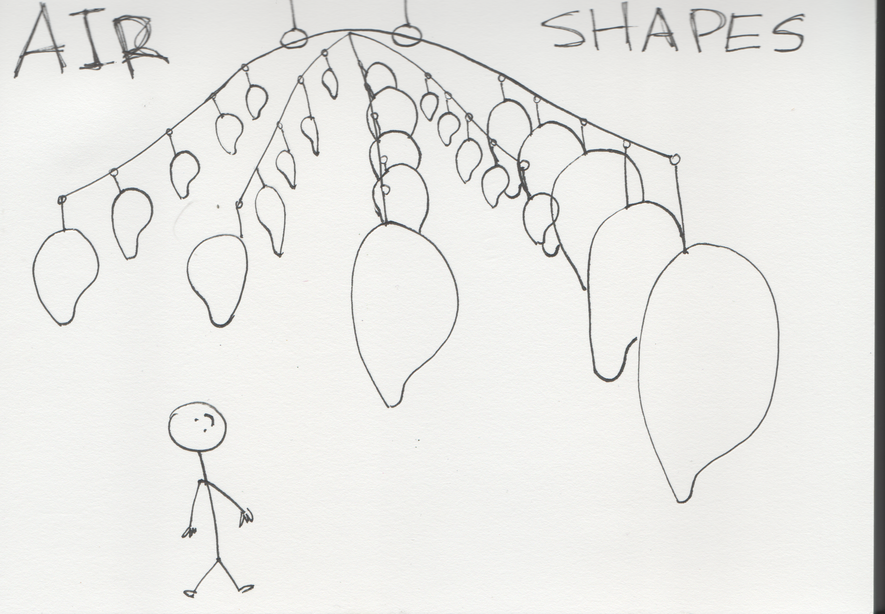 AIR SHAPES